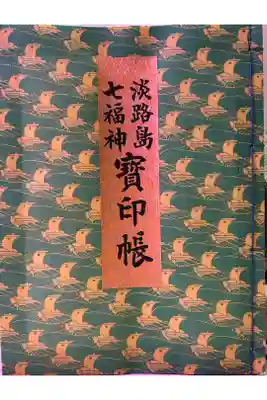 淡路島
七福神
寳印帳